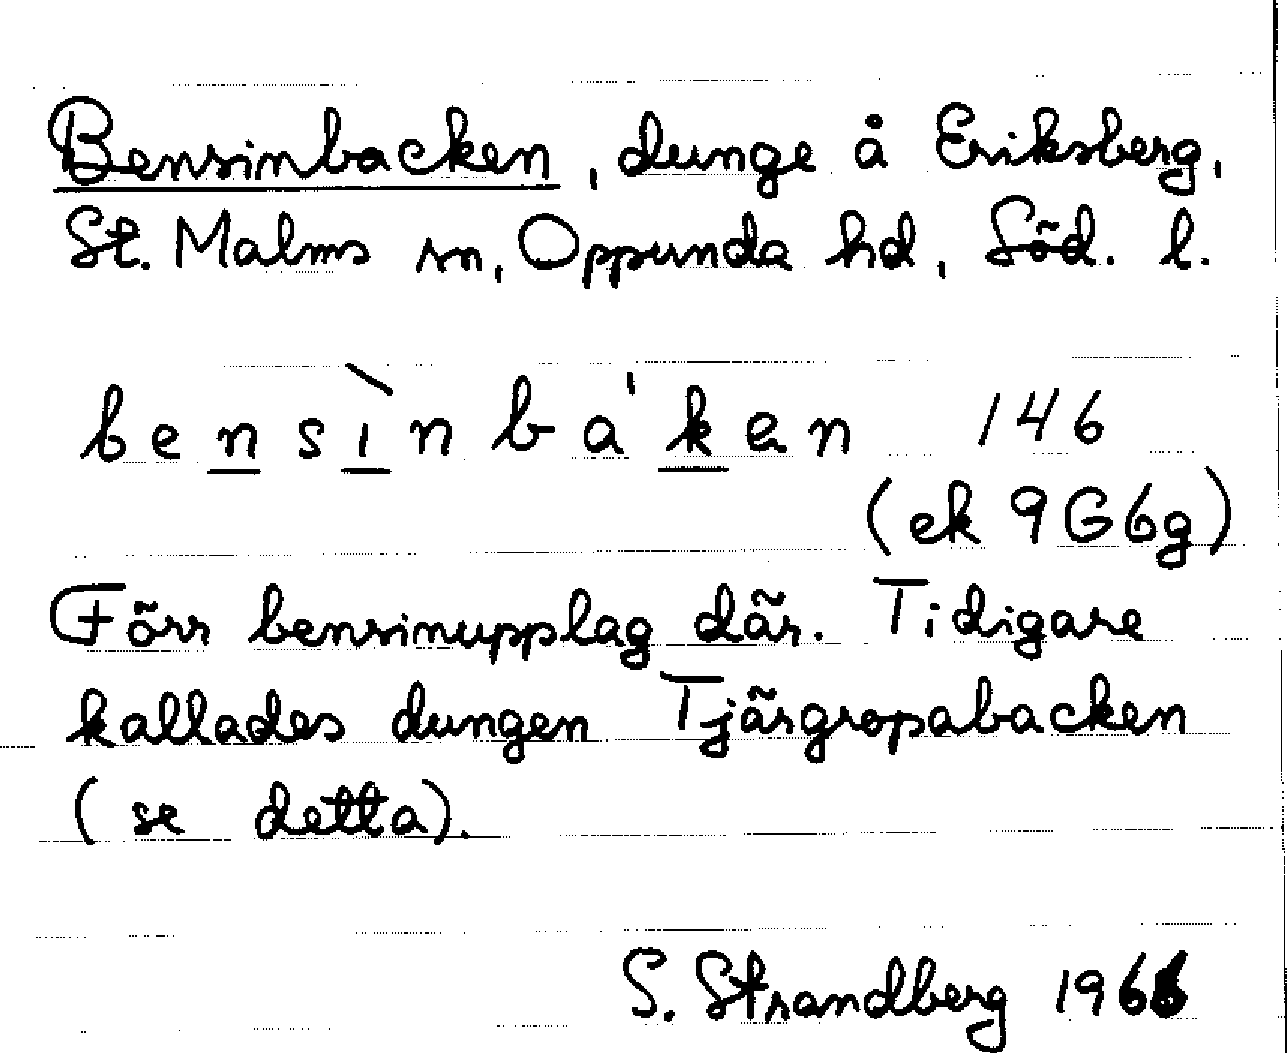 Bensinbacken, dunge å Eriksberg,
St. Malms sn, Oppunda hd, Söd. l.
bensìnba'ken 146
(ek 9G6g)
Förr bensinupplag där. Tidigare
kallades dungen Tjärgropabacken
(se detta).
S. Strandberg 1966